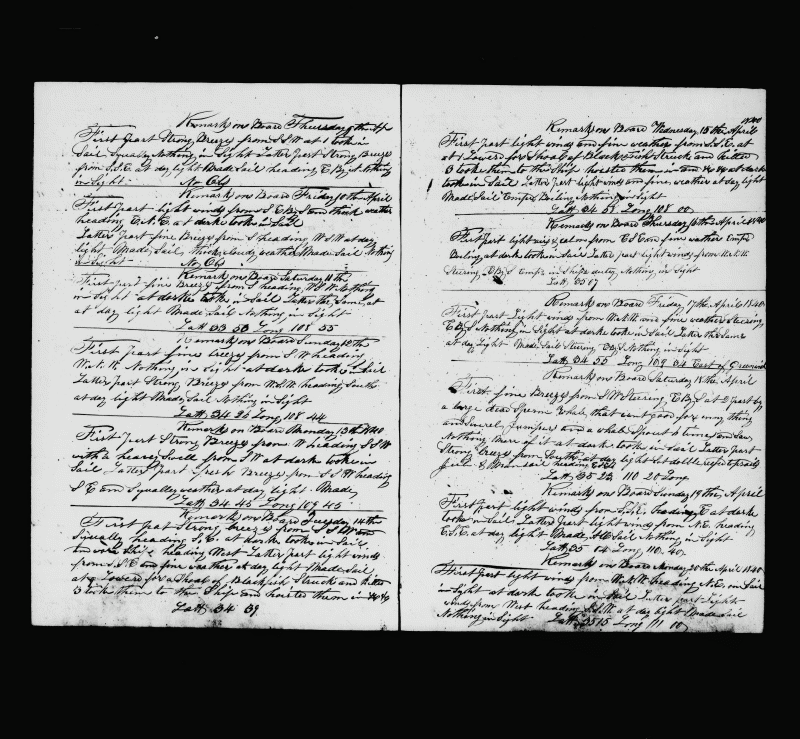 Remarks on Board Thursday 9th Ap
First part Strong Breeze from S.S.W at 1 took in
Sail Squally Nothing in Sight Latter part Strong Breeze
from S.S.E at day light Made Sail heading E.B.S. Nothing
in Sight No Ob
Remarks on Board Friday 10th April
First part light winds from S.E.B.S and thick weather
heading E.N.E. at dark took in Sail
Latter part fine Breeze from S heading W.S.W at day
light Made Sail thick cloudy weather Made Sail Nothing
in Sight No Ob
Remarks on Board Saturday 11th
First part fine Breeze from S heading W.S.W. Nothing
in Sight at dark took in Sail Latter the Same at
at day light Made Sail Nothing in Sight
Latt 33 50 Long 108 55
Remarks on Board Sunday 12th
First part fine breeze from S.W heading
W.N.W. Nothing in Sight at dark took in Sail
Latter part Strong Breeze from W.S.W. heading South
at day light Made Sail Nothing in Sight
Latt. 34 26 Long 108 44
Remarks on Board Monday 13th 1840
First part Strong Breeze from W heading S.S.W
with a heavy Swell from S.W at dark took in
Sail Latter part fresh Breeze from S.S.W heading
S.E and Squally weather at day light Made
Latt 34 45 Long 109 45
Remarks on Board Tuesday 14th
First part Strong breeze from S.S.W and
Squally heading S.E. at dark took in Sail
and wore Ship heading West Latter part light winds
from S.S.E and fine weather at day light Made Sail
at 9 Lowered for a Shoal of Blackfish Struck and killed
3 took them to the Ship and hoisted them in
Latt 34 59
1840
Remarks on Board Wednesday 15th April
First part light winds and fine weather from S.S.E. at
at 1 Lowered for Shoal of Black Fish Struck and killed
6 took them to the Ship hoisted them in at dark
took in Sail Latter part light winds and fine weather at day light
Made Sail Employ Boiling Nothing in Sight
Latt 34 59 Long 108 00
Remarks on Board Thursday 16th April 1840
First part light airs & calms from E.S.E and fine weather Empl
Boiling at dark took in Sail Latter part light winds from W.N.W.
Steering E.B.S. Empl in Ships duty Nothing in Sight
Latt. 35 07
Remarks on Board Friday 17th April 1840
First part Light winds from W.N.W and fine weather Steering
E.B.S Nothing in Sight at dark took in Sail Latter the Same
at day light Made Sail Steering E.B.S Nothing in Sight
Latt 34 55 Long 109 34 East of Greenwich
Remarks on Board Saturday 18th April
First fine Breeze from S.W Steering E.B.S at 2 part by
a large dead Sperm Whale that aint good for any thing
and Several Jumpers and a whale Spout 6 times and Saw
Nothing More of it at dark took in Sail Latter part
Strong breeze from South at day light Set
heading
Latt 35 23 110 20 Long
Remarks on Board Sunday 19th April
First part light winds from S.S.E. heading E at dark
took in Sail Latter part light winds from N.E. heading
E.S.E. at day light Made Sail Nothing in Sight
Latt 35 04 Long 110 40
Remarks on Board Monday 20th April 1840
First part light winds from W.N.W heading N.E. on Sail
in Sight at dark took in Sail Latter part light
winds from West heading S.S.W. at day light Made Sail
Nothing in Sight Latt 35 15 Long 111 00